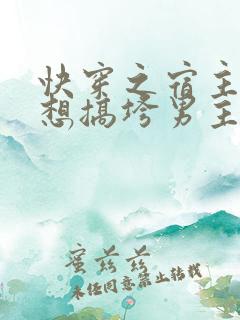 快穿之宿主
想搞垮男主
蜜兹兹
未经同意禁止转载